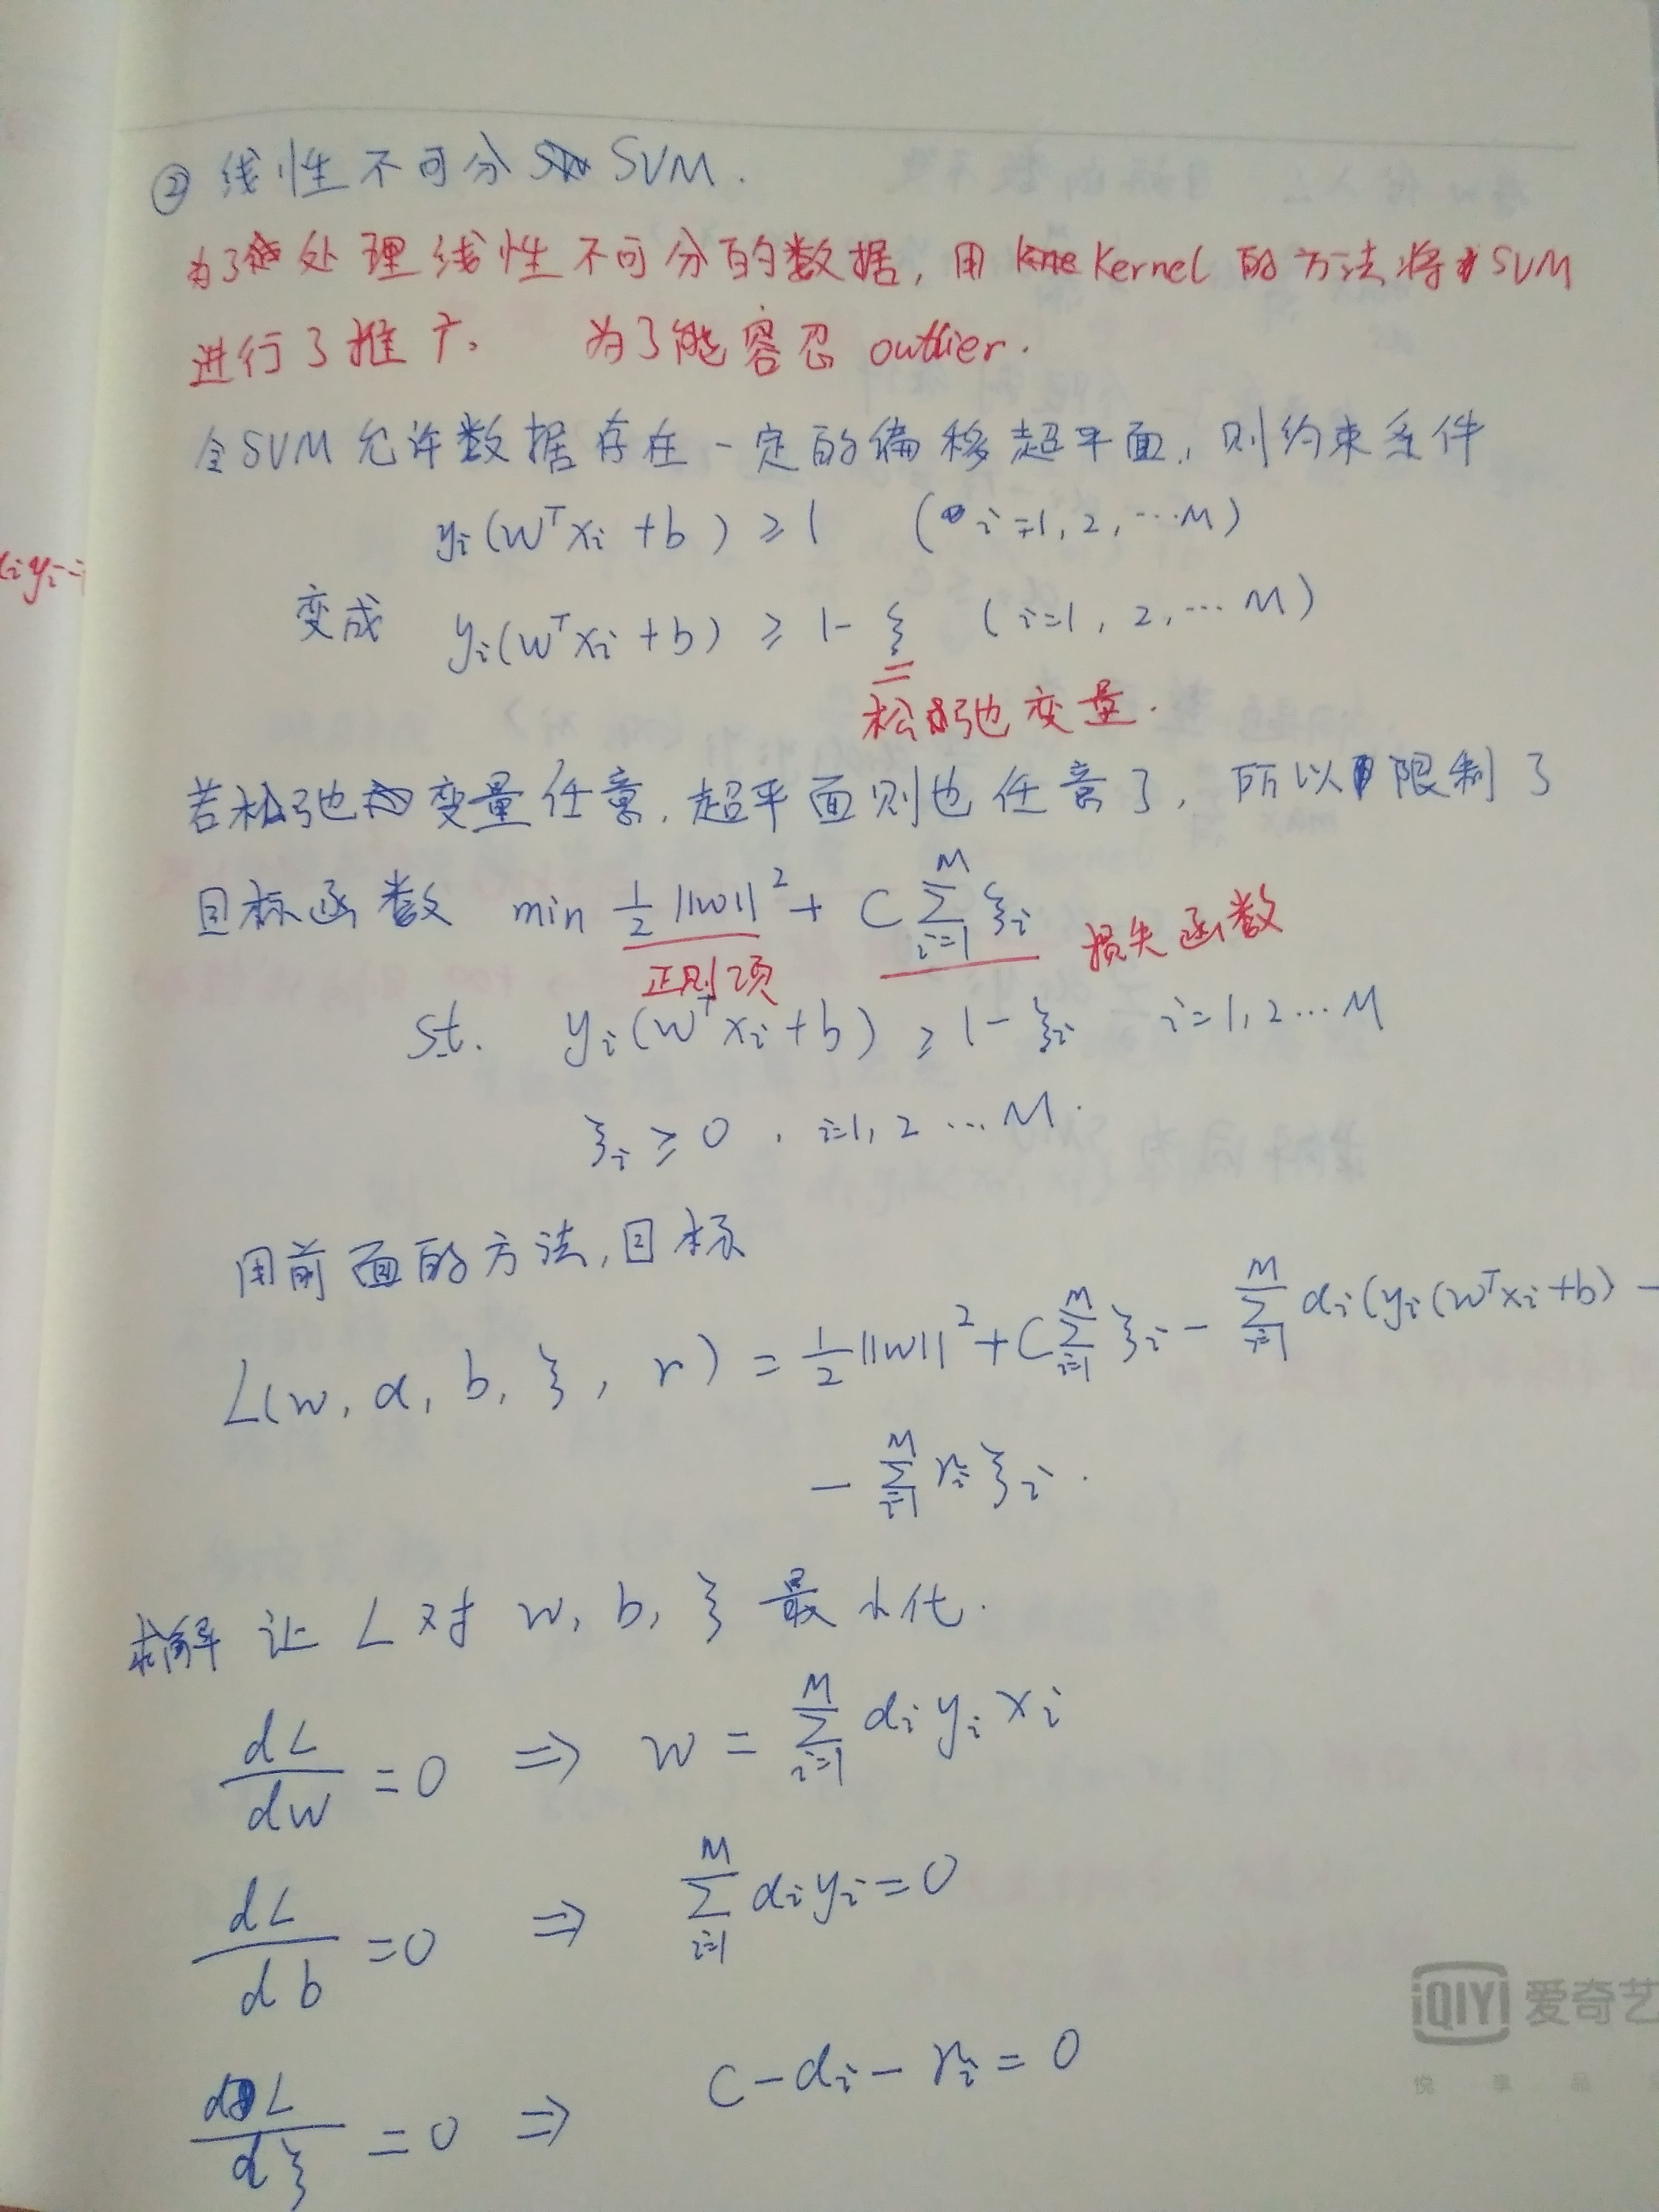 ② 线性不可分 SVM.
为了处理线性不可分的数据, 用 Kernel 的方法将 SVM
进行了推广。 为了能容忍 outlier.
令SVM 允许数据存在一定的偏移超平面, 则约束条件
yᵢ(wᵀxᵢ + b) ≥ 1 (i=1, 2, ⋯M)
αᵢyᵢ
变成 yᵢ(wᵀxᵢ + b) ≥ 1 - ξ (i=1, 2, ⋯ M)
松弛变量.
若松弛变量任意, 超平面则也任意了, 所以限制了
目标函数 min ½‖w‖² + C∑ᵢ₌₁ᴹ ξᵢ 损失函数
正则项
s.t. yᵢ(wᵀxᵢ + b) ≥ 1 - ξᵢ i=1, 2 ⋯ M
ξᵢ ≥ 0 , i=1, 2 ⋯ M.
用前面的方法, 目标
L(w, α, b, ξ, r) = ½‖w‖² + C∑ᵢ₌₁ᴹ ξᵢ - ∑ᵢ₌₁ᴹ αᵢ(yᵢ(wᵀxᵢ+b) -
- ∑ᵢ₌₁ᴹ rᵢ ξᵢ .
求解 让 L 对 w, b, ξ 最小化.
dL/dw = 0 ⇒ w = ∑ᵢ₌₁ᴹ αᵢ yᵢ xᵢ
dL/db = 0 ⇒ ∑ᵢ₌₁ᴹ αᵢyᵢ = 0
dL/dξ = 0 ⇒ C - αᵢ - rᵢ = 0
iQIYI 爱奇艺
悦 享 品